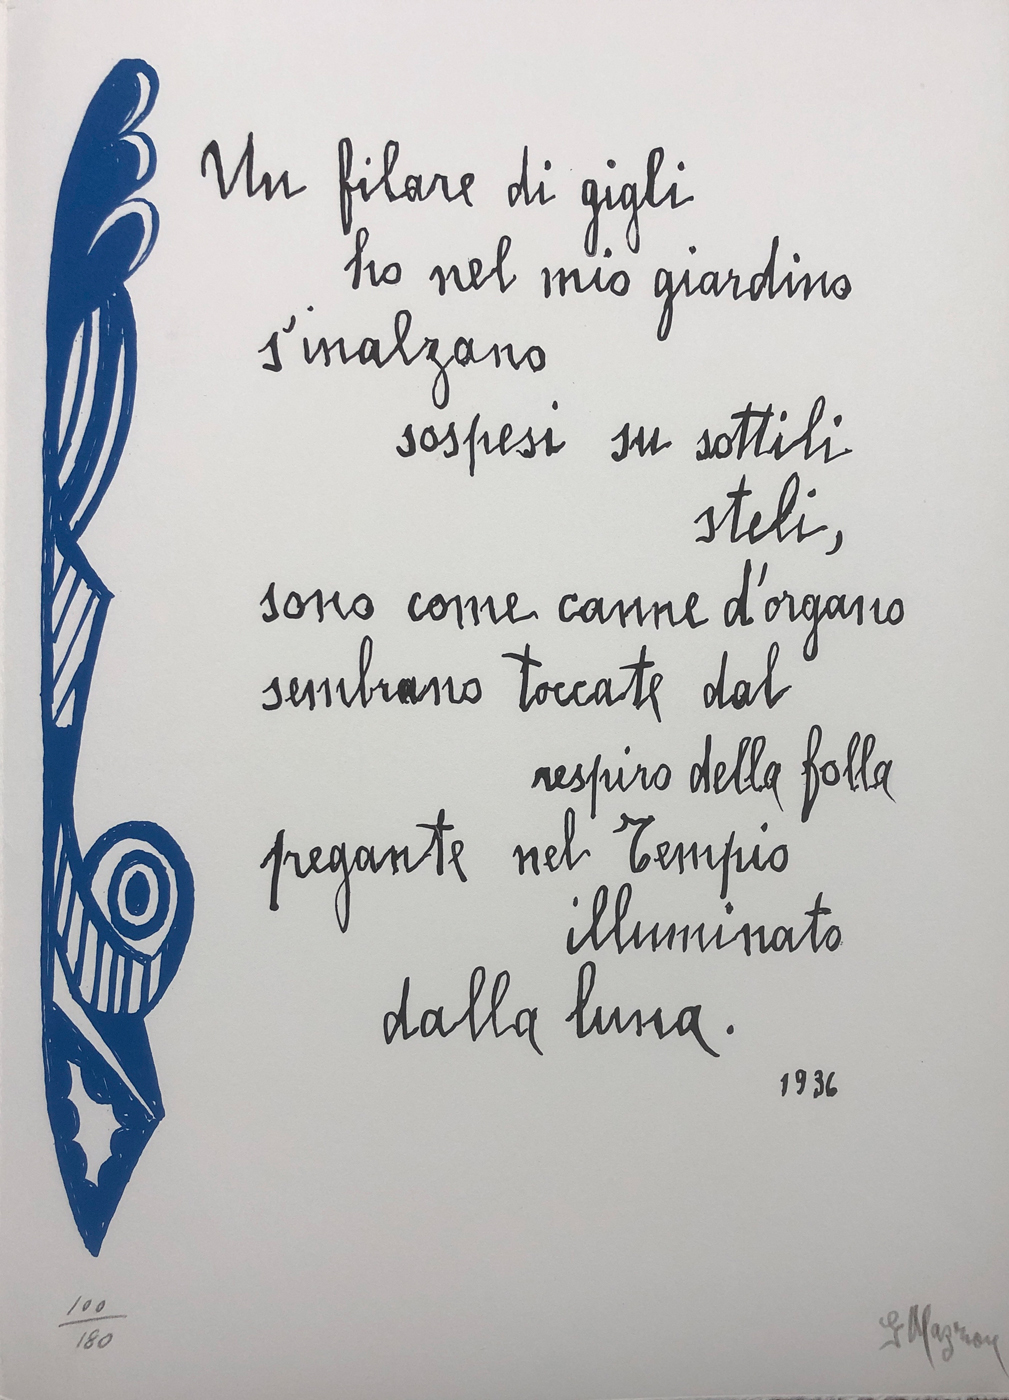 Un filare di gigli
ho nel mio giardino
s'inalzano
sospesi su sottili
steli,
sono come canne d'organo
sembrano toccate dal
respiro della folla
pregante nel Tempio
illuminato
dalla luna.
1936
100
180